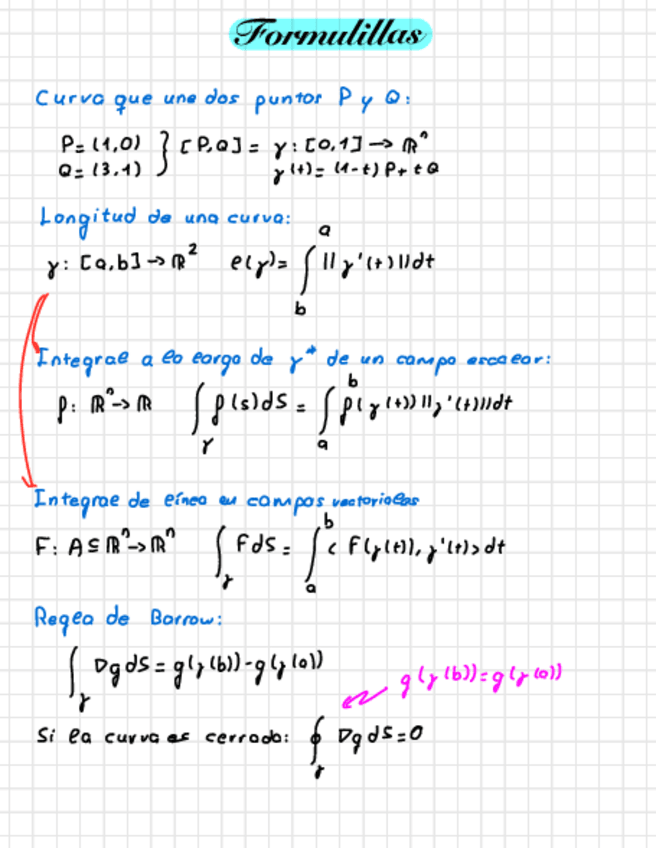 Formulillas
Curva que une dos puntos P y Q:
P=(1,0) } [P,Q] = γ: [0,1] → ℝⁿ
Q=(3,1) γ(t)= (1-t) P+ t Q
Longitud de una curva:
γ: [a,b] → ℝ² ℓ(γ)= ∫_b^a ||γ'(t)||dt
Integral a lo largo de γ* de un campo escalar:
f: ℝⁿ → ℝ ∫_γ f(s)dS = ∫_a^b f(γ(t)) ||γ'(t)||dt
Integral de línea en campos vectoriales
F: A⊆ℝⁿ→ℝⁿ ∫_γ FdS = ∫_a^b < F(γ(t)), γ'(t)> dt
Regla de Barrow:
∫_γ ∇g dS = g(γ(b))-g(γ(a))
g(γ(b))=g(γ(a))
Si la curva es cerrada: ∮_γ ∇g dS=0